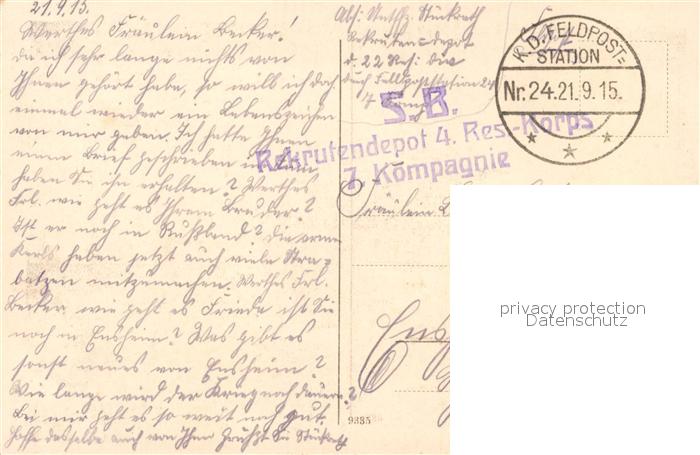 21.9.15.
Werthes Fräulein Becker!
da ich sehr lange nichts von
Ihnen gehört habe, so will ich doch
einmal wieder ein Lebenszeichen
von mir geben. Ich hatte Ihnen
einen Brief geschrieben
haben Sie ihn erhalten? Werthes
Frl. wie geht es Ihrem Bruder?
Ist er noch in Rußland? Die armen
Kerls haben jetzt auch viele Stra-
batzen mitzumachen. Werthes Frl.
Becker wie geht es Frieda ist Sie
noch in Ensheim? Was gibt es
sonst neues von Ensheim?
Wie lange wird der Krieg noch dauern?
Bei mir geht es so weit noch gut.
Hoffe dasselbe auch von Ihnen Grüßt Sie Stückrath
Abs: Untffz. Stückrath
Rekruten-depot
d. 22 Res: Div
durch Feldpoststation 24
7 Komp
K.D. FELDPOST=
STATION
Nr. 24. 21. 9. 15.
S. B.
Rekrutendepot 4. Res.-Korps
7. Kompagnie
Fräulein
Ens
9335
privacy protection
Datenschutz